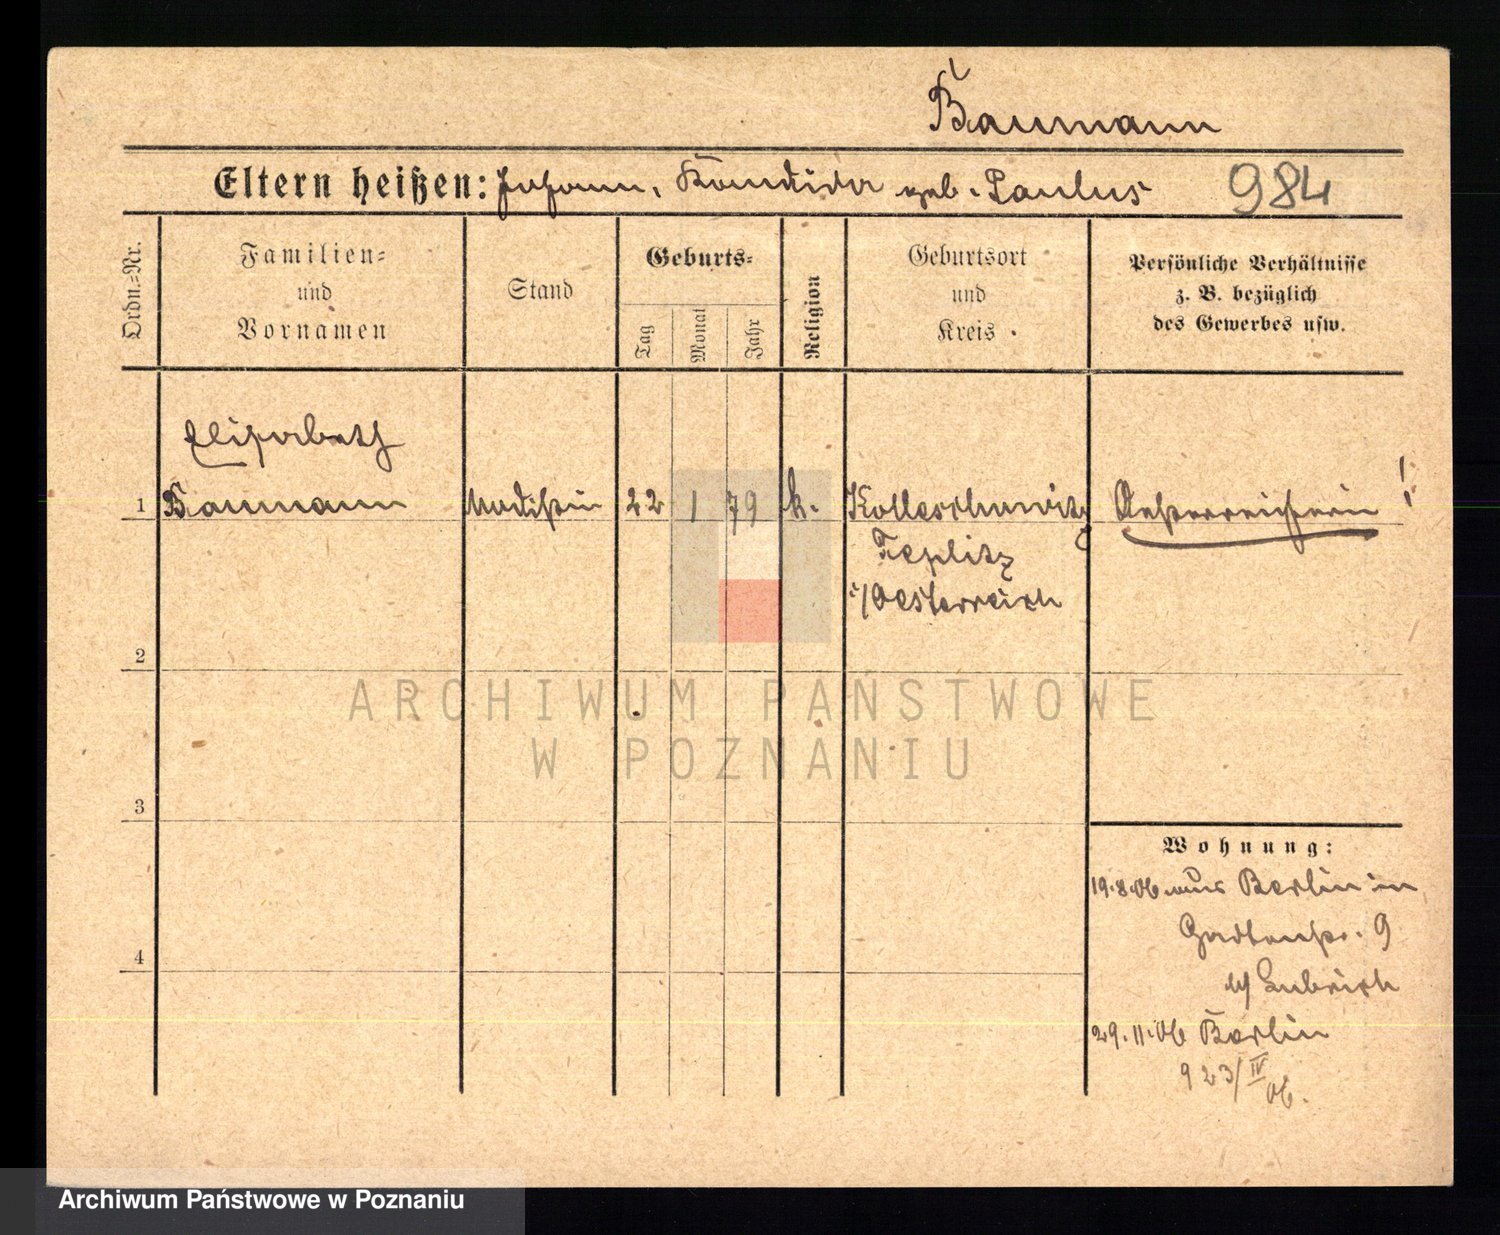 Baumann
Eltern heißen: Johann, Kandida geb. Paulus 984
Ordn.=Nr.
Familien=
und
Vornamen
Stand
Geburts=
Tag
Monat
Jahr
Religion
Geburtsort
und
Kreis
Persönliche Verhältnisse
z. B. bezüglich
des Gewerbes usw.
Elisabeth
1 Baumann Modistin 22 1 79 k. Oesterreicherin !
Teplitz
i/Oesterreich
2
3
4
ARCHIWUM PAŃSTWOWE
W POZNANIU
Wohnung:
19.8.06 aus Berlin in
9
b/
29.11.06 Berlin
923/IV
06.
Archiwum Państwowe w Poznaniu